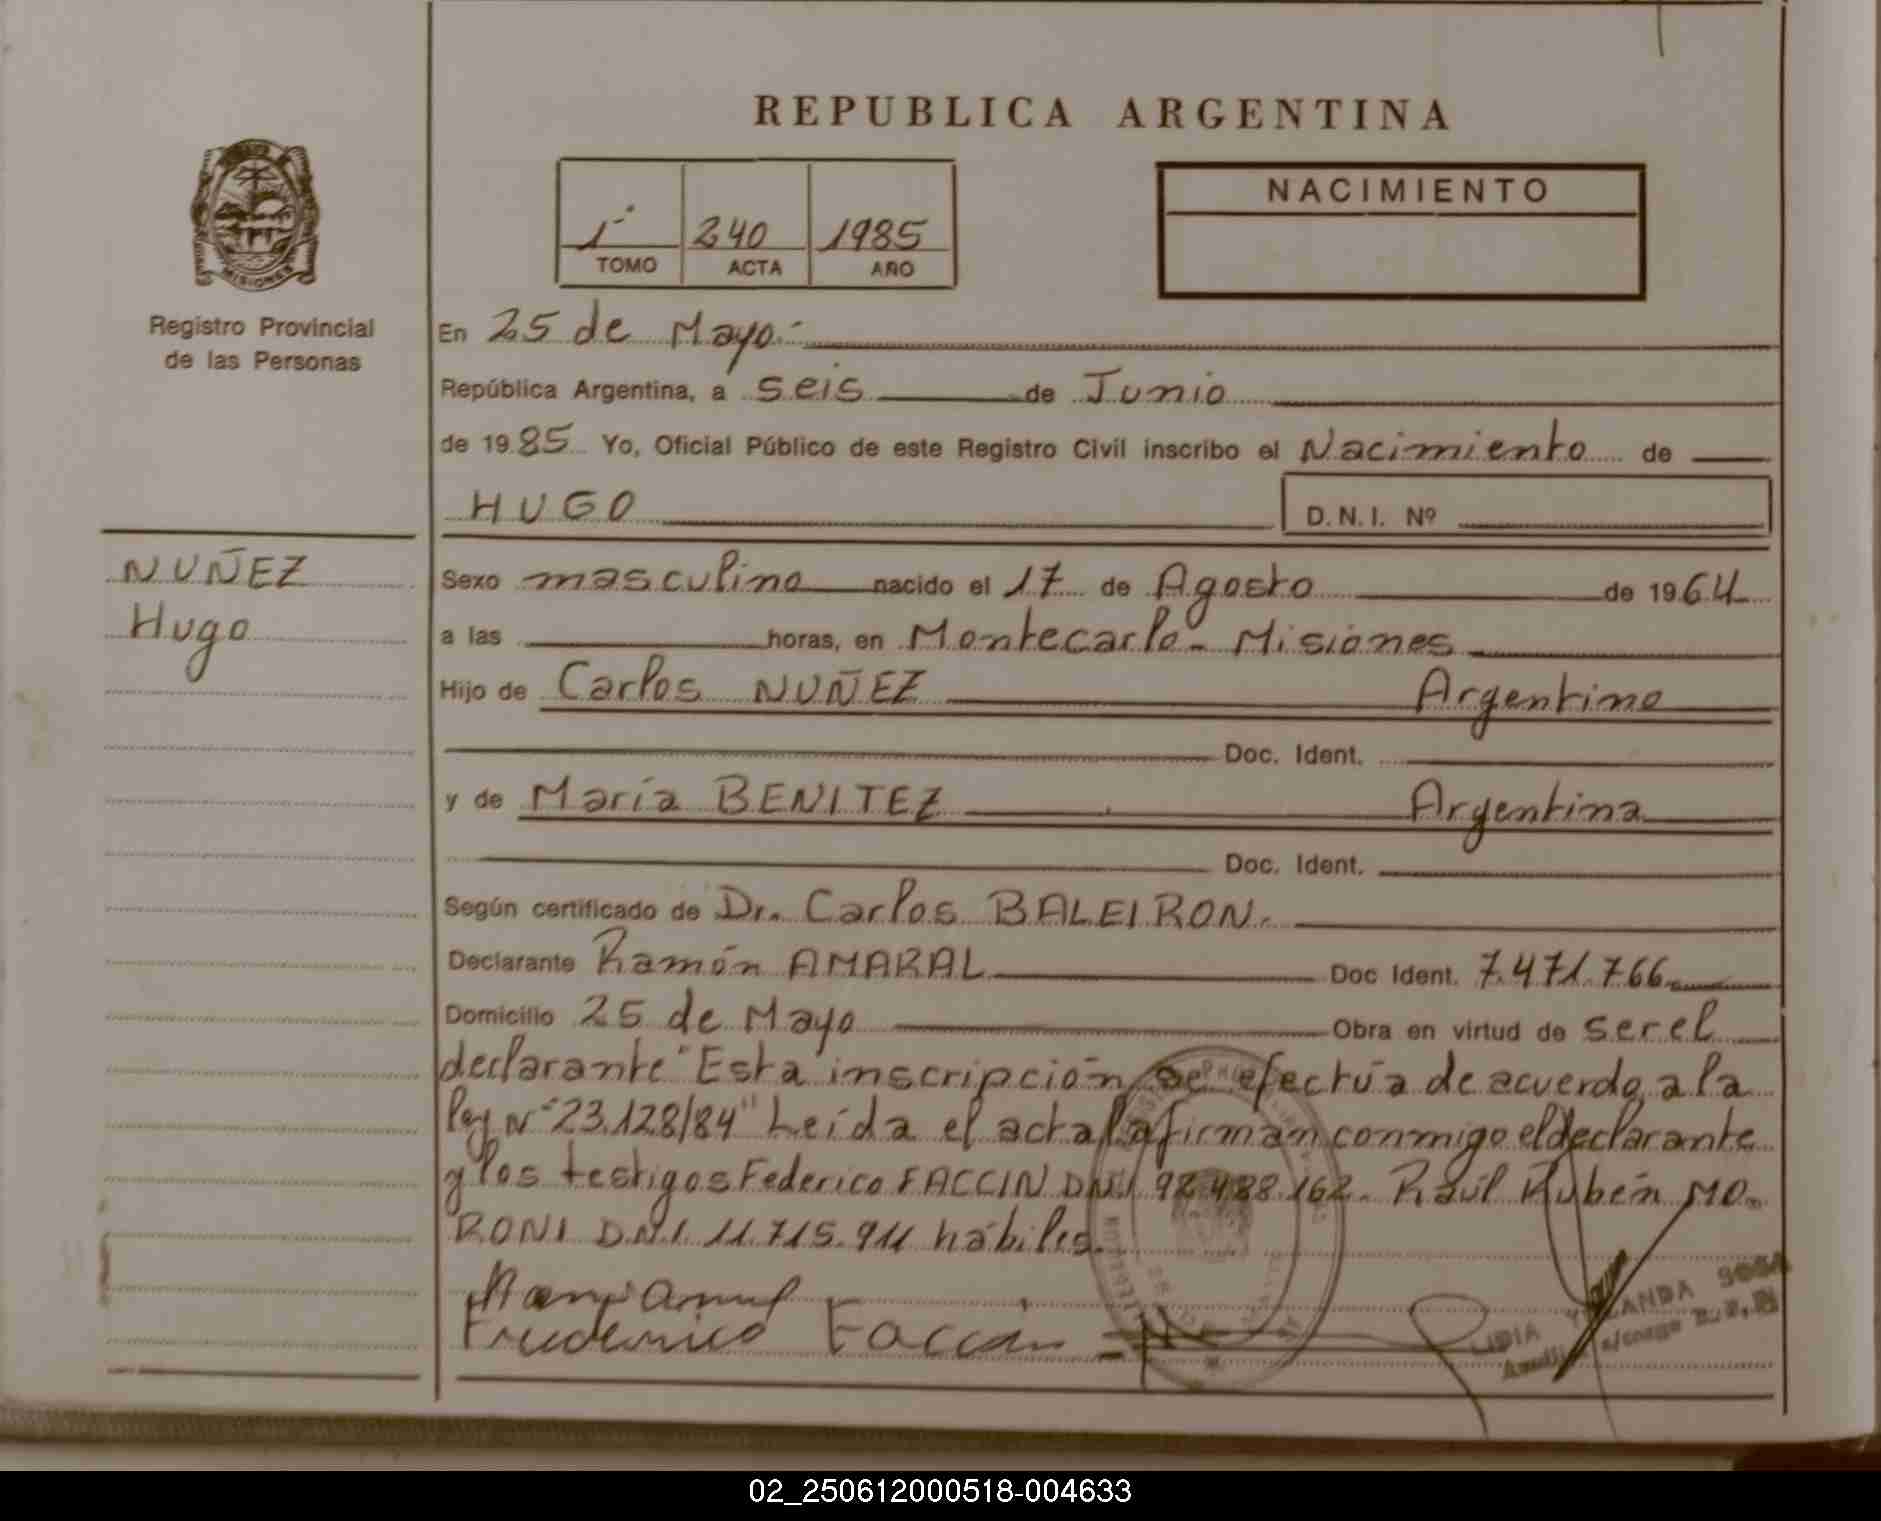 REPUBLICA ARGENTINA
MISIONES
Registro Provincial
de las Personas
1º 240 1985
TOMO ACTA AÑO
NACIMIENTO
En 25 de Mayo.-
República Argentina, a seis de Junio
de 1985 Yo, Oficial Público de este Registro Civil inscribo el Nacimiento de
HUGO
D.N.I. Nº
NUÑEZ
Hugo
Sexo masculino nacido el 17 de Agosto de 1964
a las horas, en Montecarlo - Misiones
Hijo de Carlos NUÑEZ Argentino
Doc. Ident.
y de María BENITEZ Argentina
Doc. Ident.
Según certificado de Dr. Carlos BALEIRON.
Declarante Ramón AMARAL Doc Ident. 7.471.766
Domicilio 25 de Mayo Obra en virtud de ser el
declarante "Esta inscripción se efectúa de acuerdo a la
ley Nº 23.128/84" Leída el acta la firman conmigo el declarante
y los testigos Federico FACCIN DNI 92.488.162. Raúl Rubén MO-
RONI DNI. 11.715.911 hábiles.
Faccin
LIDIA YOLANDA SOSA
02_250612000518-004633